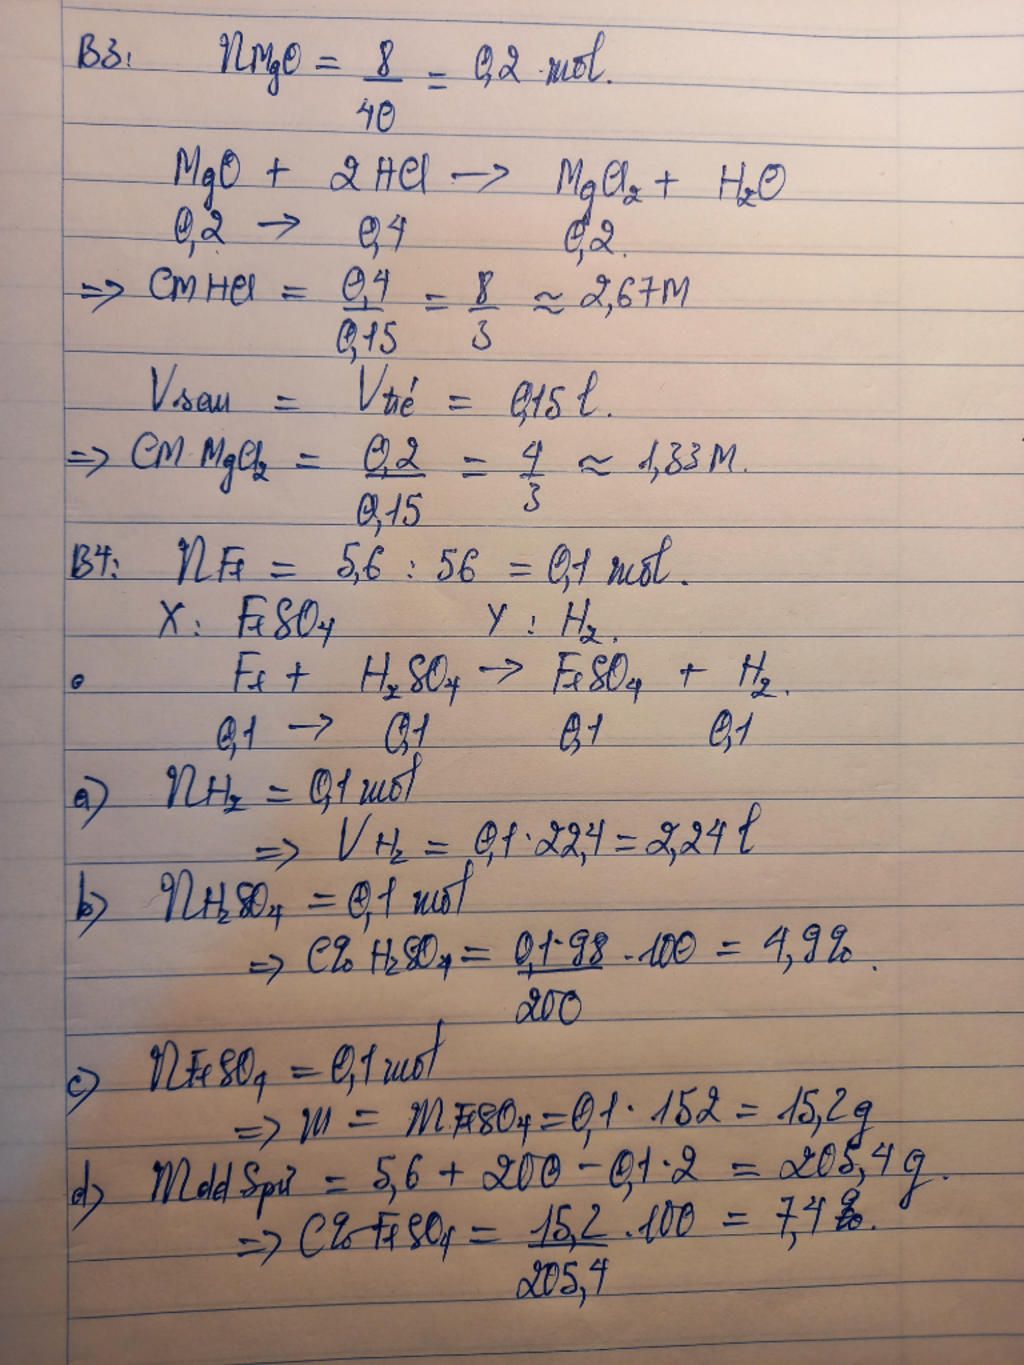 B3: nMgO = 8/40 = 0,2 mol.
MgO + 2HCl → MgCl₂ + H₂O
0,2 → 0,4 0,2.
=> CM HCl = 0,4/0,15 = 8/3 ≈ 2,67M
Vsau = = 0,15 l.
=> CM MgCl₂ = 0,2/0,15 = 4/3 ≈ 1,33M.
B4: nFe = 5,6 : 56 = 0,1 mol.
X: FeSO₄ Y: H₂.
• Fe + H₂SO₄ → FeSO₄ + H₂.
0,1 → 0,1 0,1 0,1
a) nH₂ = 0,1 mol
=> VH₂ = 0,1.22,4 = 2,24 l
b) nH₂SO₄ = 0,1 mol
=> C% H₂SO₄ = 0,1.98/200 .100 = 4,9%.
c) nFeSO₄ = 0,1 mol
=> m = mFeSO₄ = 0,1. 152 = 15,2g
d) mdd Spứ = 5,6 + 200 - 0,1.2 = 205,4 g.
=> C% FeSO₄ = 15,2/205,4 .100 = 7,4%.